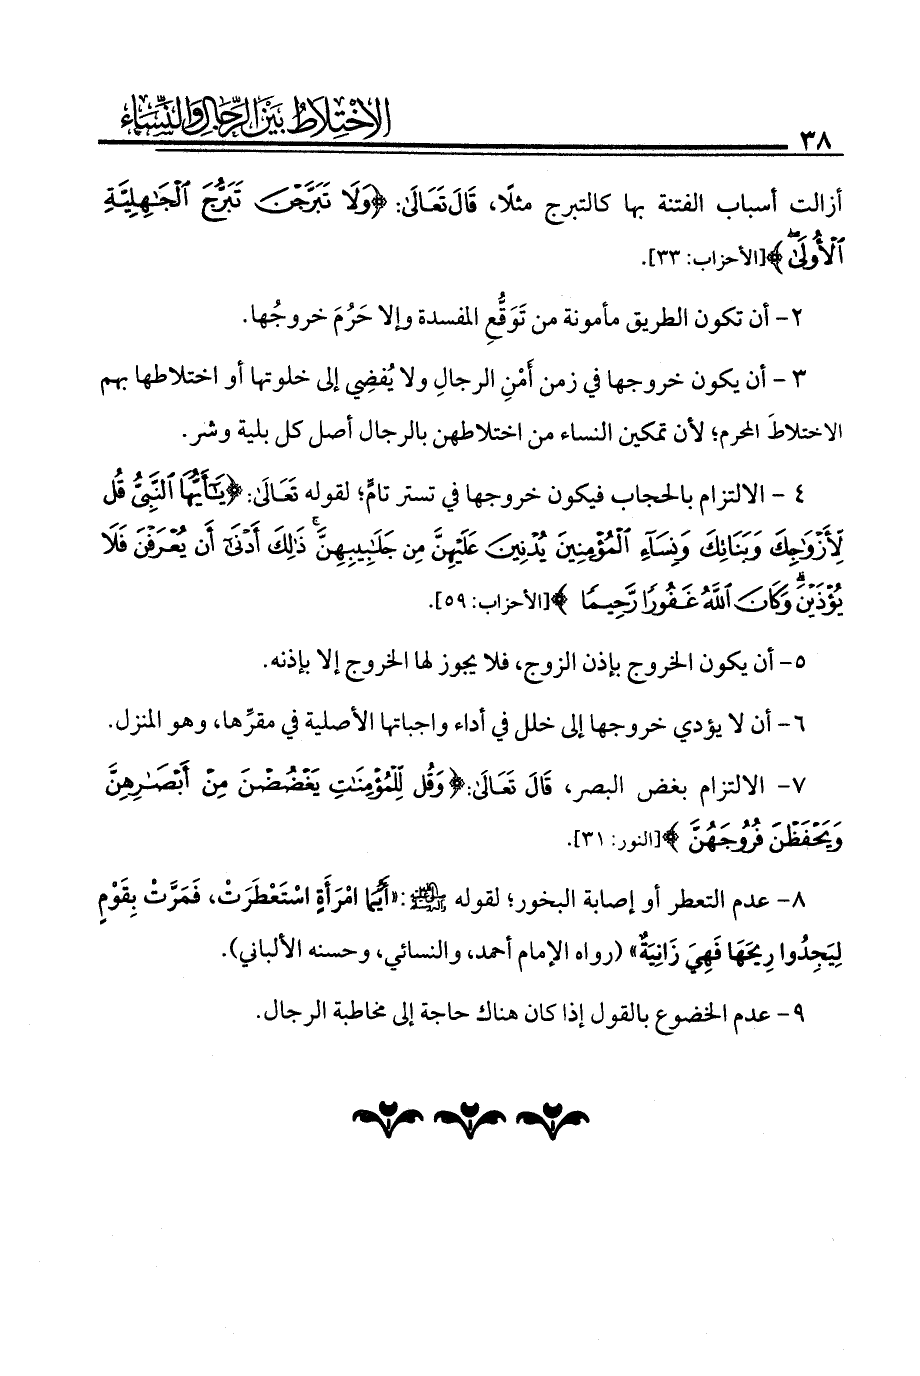 ٣٨
الاختلاط بين الرجال والنساء
أزالت أسباب الفتنة بها كالتبرج مثلًا، قَالَ تَعَالَىٰ: ﴿وَلَا تَبَرَّجْنَ تَبَرُّجَ ٱلْجَٰهِلِيَّةِ
ٱلْأُولَىٰۖ﴾[الأحزاب: ٣٣].
٢- أن تكون الطريق مأمونة من تَوَقُّعِ المفسدة وإلا حَرُمَ خروجُها.
٣ - أن يكون خروجها في زمن أَمْنِ الرجالِ ولا يُفضِي إلى خلوتها أو اختلاطها بهم
الاختلاطَ المحرم؛ لأن تمكين النساء من اختلاطهن بالرجال أصل كل بلية وشر.
٤ - الالتزام بالحجاب فيكون خروجها في تستر تامٍّ؛ لقوله تَعَالَىٰ: ﴿يَٰٓأَيُّهَا ٱلنَّبِىُّ قُل
لِّأَزْوَٰجِكَ وَبَنَاتِكَ وَنِسَآءِ ٱلْمُؤْمِنِينَ يُدْنِينَ عَلَيْهِنَّ مِن جَلَٰبِيبِهِنَّۚ ذَٰلِكَ أَدْنَىٰٓ أَن يُعْرَفْنَ فَلَا
يُؤْذَيْنَۗ وَكَانَ ٱللَّهُ غَفُورًا رَّحِيمًا ﴾[الأحزاب: ٥٩].
٥- أن يكون الخروج بإذن الزوج، فلا يجوز لها الخروج إلا بإذنه.
٦- أن لا يؤدي خروجها إلى خلل في أداء واجباتها الأصلية في مقرِّها، وهو المنزل.
٧- الالتزام بغض البصر، قَالَ تَعَالَىٰ:﴿وَقُل لِّلْمُؤْمِنَٰتِ يَغْضُضْنَ مِنْ أَبْصَٰرِهِنَّ
وَيَحْفَظْنَ فُرُوجَهُنَّ ﴾[النور: ٣١].
٨- عدم التعطر أو إصابة البخور؛ لقوله ﷺ:«أَيُّمَا امْرَأَةٍ اسْتَعْطَرَتْ، فَمَرَّتْ بِقَوْمٍ
لِيَجِدُوا رِيحَهَا فَهِيَ زَانِيَةٌ» (رواه الإمام أحمد، والنسائي، وحسنه الألباني).
٩- عدم الخضوع بالقول إذا كان هناك حاجة إلى مخاطبة الرجال.